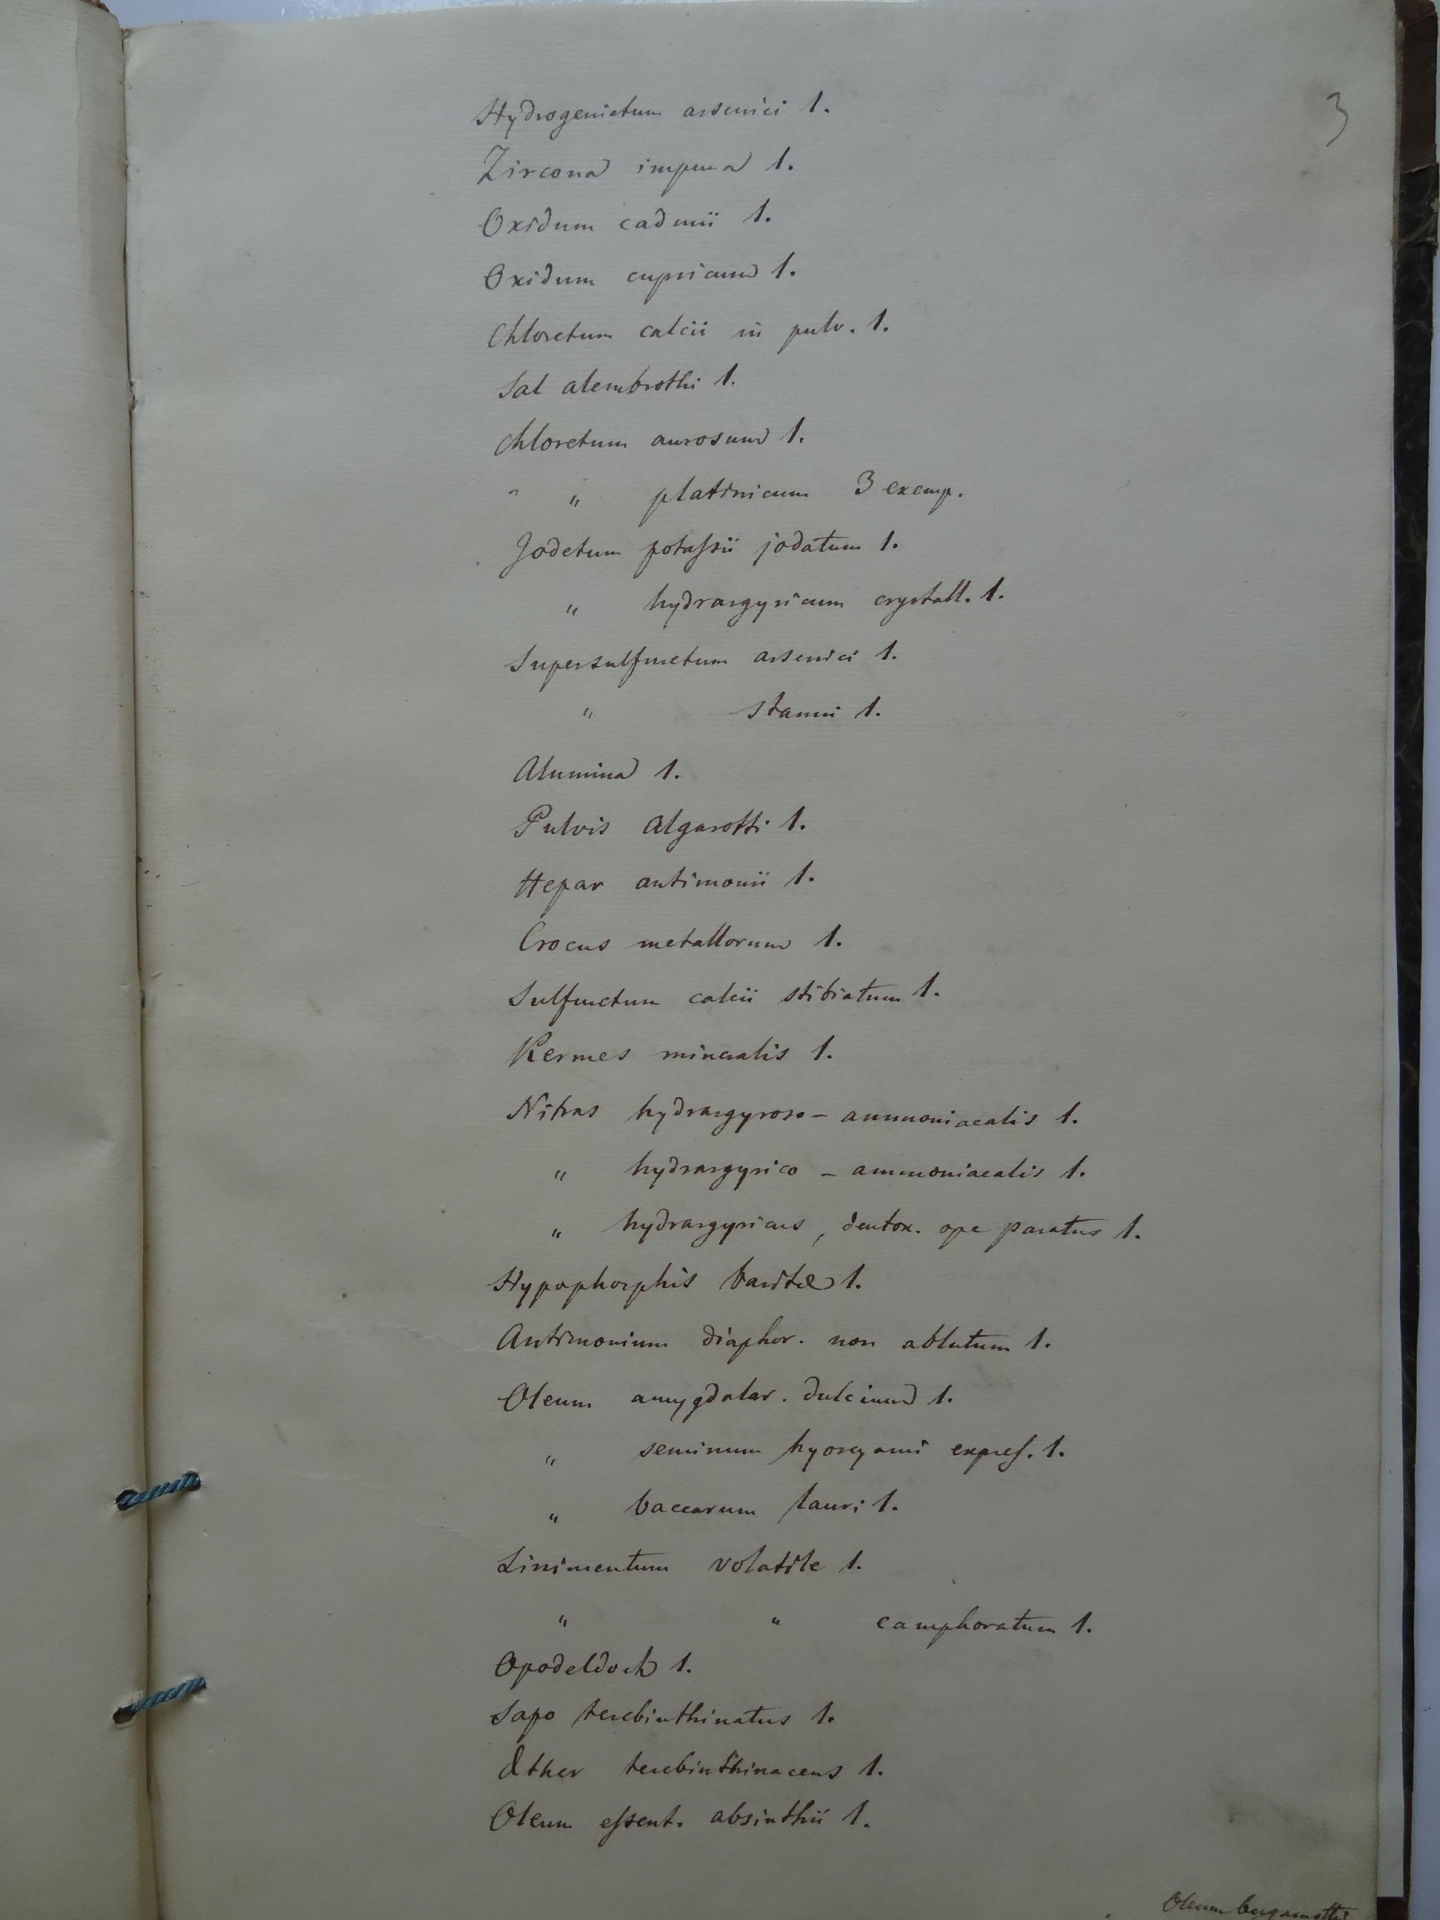 3
Hydrogenietum arsenici 1.
Zircona impura 1.
Oxidum cadmii 1.
Oxidum cupricum 1.
Chloretum calcii in pulv. 1.
Sal alembrothi 1.
Chloretum aurosum 1.
" " platinicum 3 exemp.
Jodetum potaſsii jodatum 1.
" hydrargyricum crystall. 1.
Supersulfuretum arsenici 1.
" stanni 1.
Alumina 1.
Pulvis Algarotti 1.
Hepar antimonii 1.
Crocus metallorum 1.
Sulfuretum calcii stibiatum 1.
Kermes mineralis 1.
Nitras hydrargyroso - ammoniacalis 1.
" hydrargyrico - ammoniacalis 1.
" hydrargyricus, deutox. ope paratus 1.
Hypophosphis baritæ 1.
Antimonium diaphor. non ablutum 1.
Oleum amygdalar. dulcium 1.
" seminum hyoscyami expreſ. 1.
" baccarum lauri 1.
Linimentum volatile 1.
" " camphoratum 1.
Opodeldoch 1.
Sapo terebinthinatus 1.
Æther terebinthinaceus 1.
Oleum eſsent. absinthii 1.
Oleum bergamotti